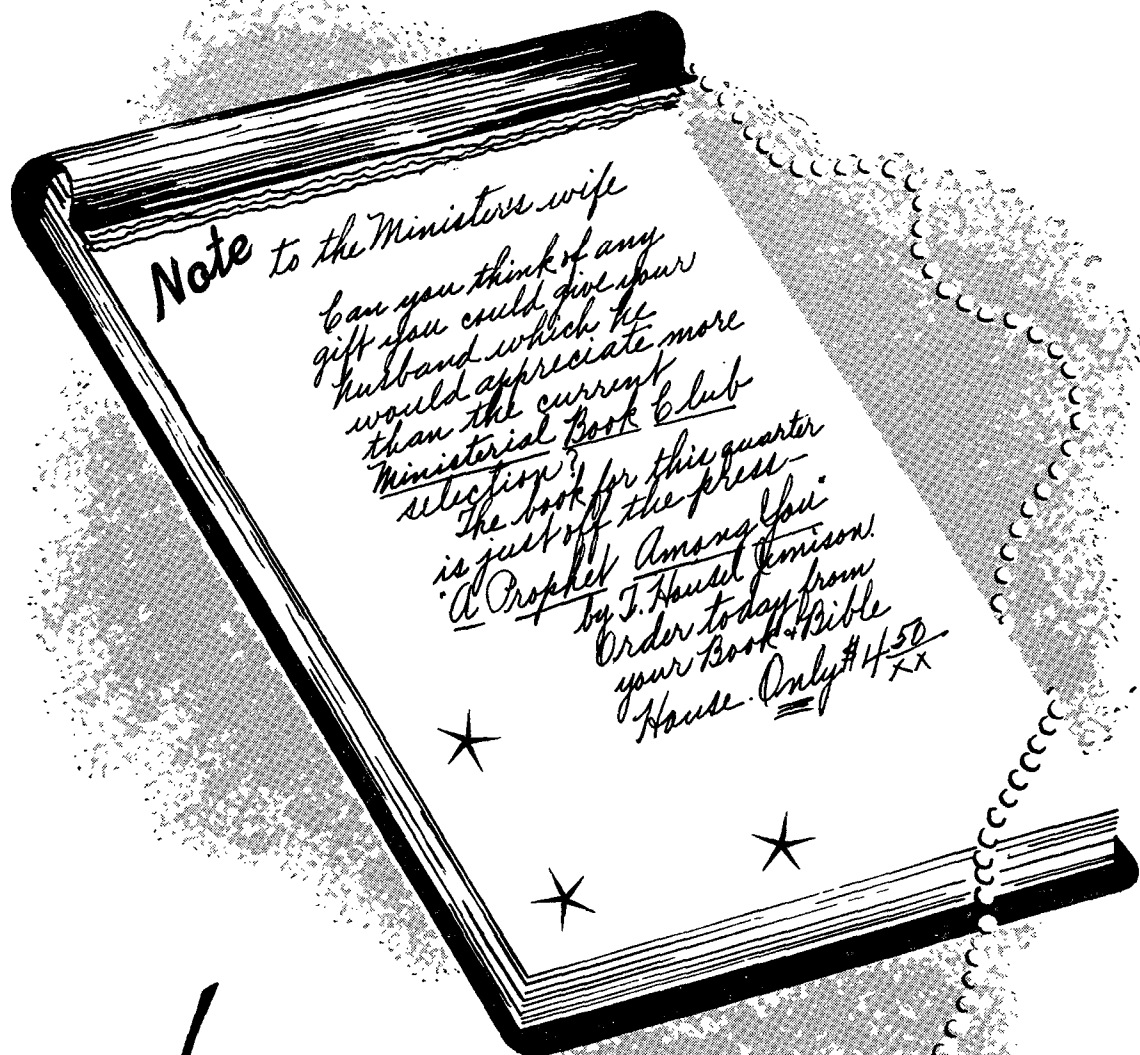 Note to the Minister's wife
Can you think of any
gift you could give your
husband which he
would appreciate more
than the current
Ministerial Book Club
selection?
The book for this quarter
is just off the press—
"A Prophet Among You"
by T. Housel Jemison.
Order today from
your Book & Bible
House. Only $4.50
xx